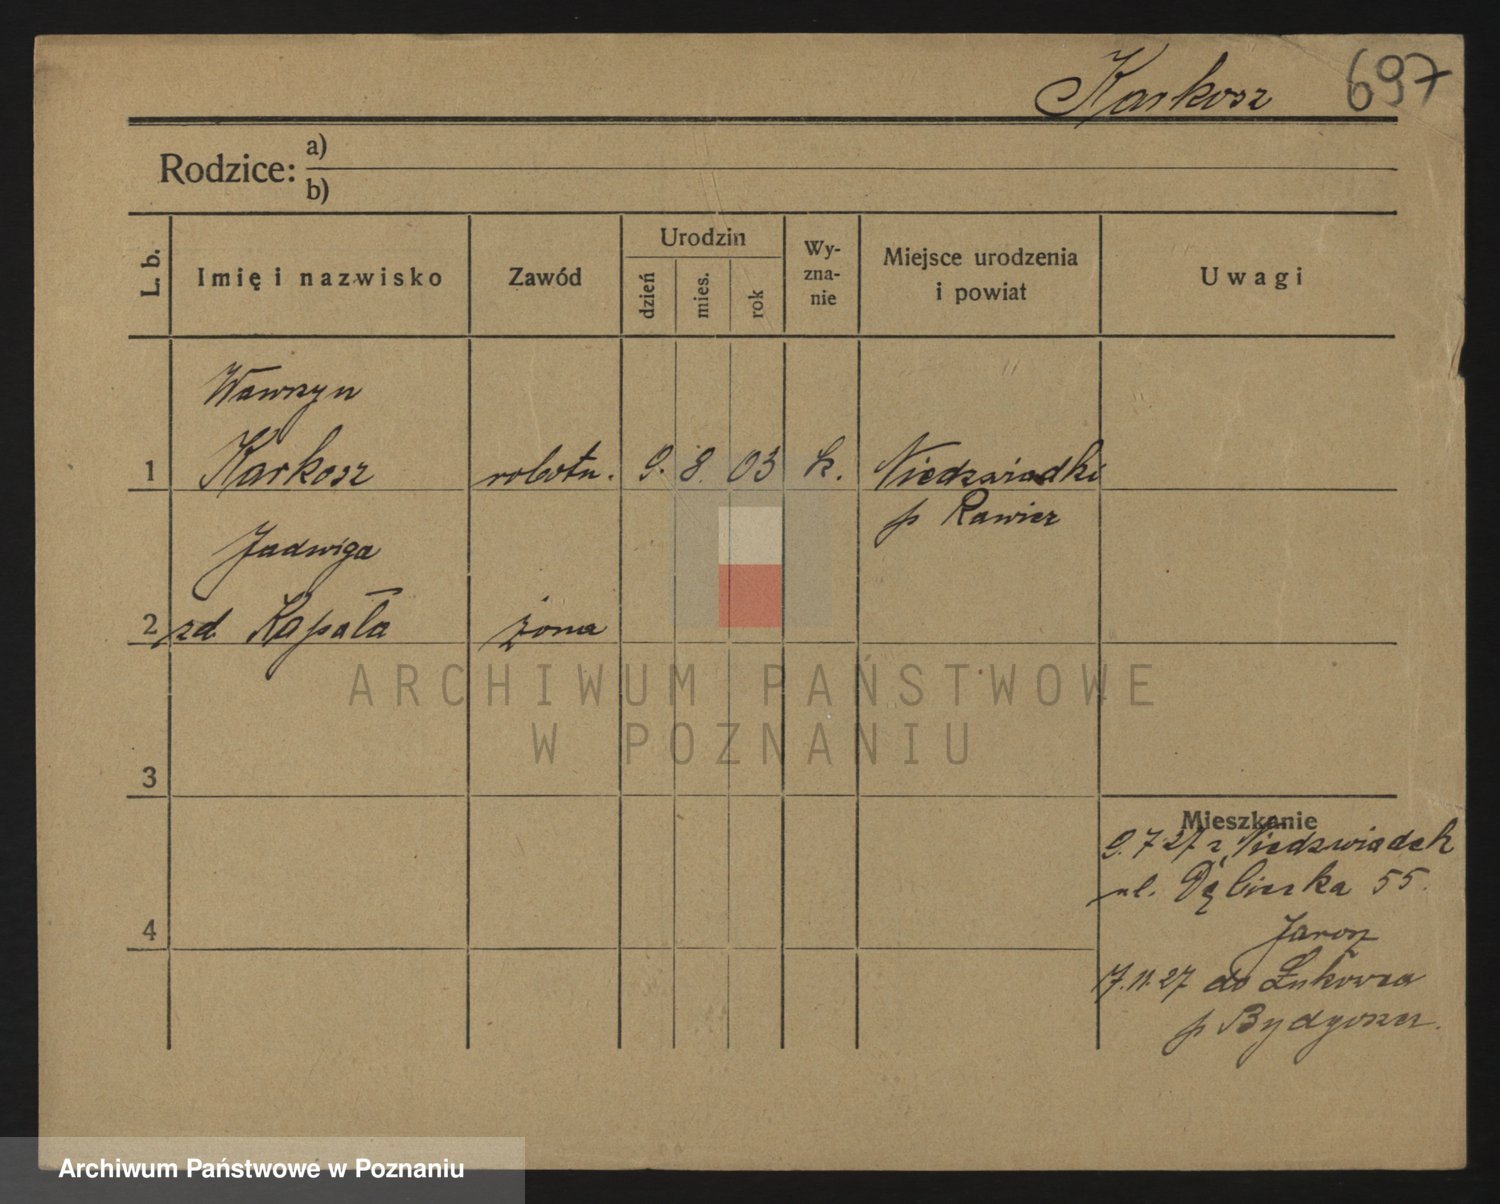 Karkosz 697
Rodzice: a)
b)
L. b.
Imię i nazwisko
Zawód
Urodzin
dzień
mies.
rok
Wy-
zna-
nie
Miejsce urodzenia
i powiat
Uwagi
Wawrzyn
1 Karkosz robotn. 9. 8. 03 k. Niedzwiadki
p Rawicz
Jadwiga
2 zd. Kapała żona
3
4
Mieszkanie
9.7.27 z Niedzwiadek
ul. Dąbierska 55.
Jaroz
17.11.27 do
p Bydgoszcz.
ARCHIWUM PAŃSTWOWE
W POZNANIU
Archiwum Państwowe w Poznaniu